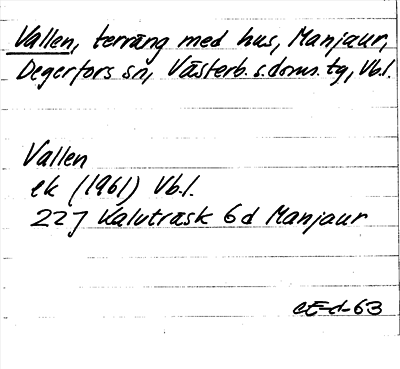 Vallen, terräng med hus, Manjaur,
Degerfors sn, Västerb. s. doms. tg, Vb.l.
Vallen
ek (1961) Vb.l.
22J Kalvträsk 6d Manjaur
CE-d-63